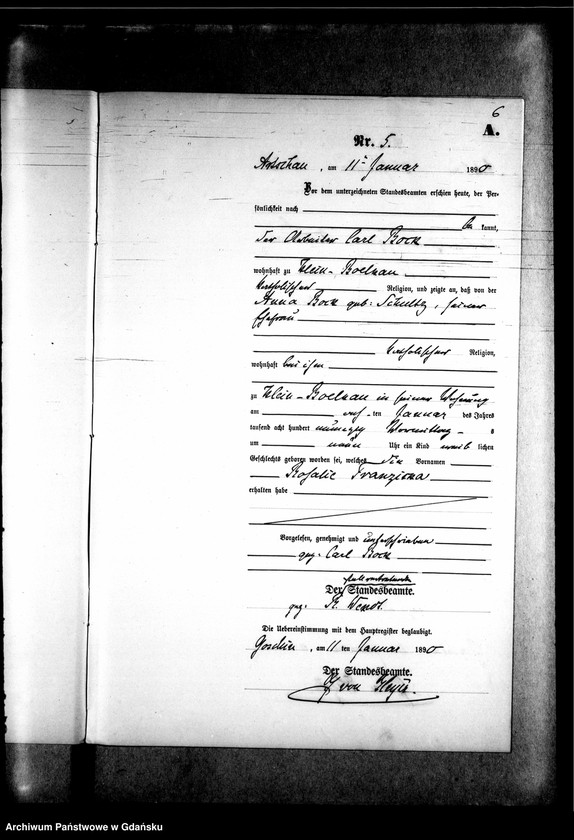 6
A.
Nr. 5.
am 11 Januar 1890
Vor dem unterzeichneten Standesbeamten erschien heute, der Per-
sönlichkeit nach
be kannt,
der Arbeiter Carl Bock
wohnhaft zu Klein-Boelkau
katholischer Religion, und zeigte an, daß von der
Anna Bock geb: Schultz, seiner
Ehefrau
katholischer Religion,
wohnhaft bei ihm
zu Klein-Boelkau in seiner Wohnung
am ten Januar des Jahres
tausend acht hundert neunzig Vormittag s
um neun Uhr ein Kind weib lichen
Geschlechts geboren worden sei, welches die Vornamen
Rosalie Franziska
erhalten habe
Vorgelesen, genehmigt und unterschrieben
gez. Carl Bock
Der Standesbeamte.
gez. Wendt.
Die Uebereinstimmung mit dem Hauptregister beglaubigt.
am 11 ten Januar 1890
Der Standesbeamte.
von
Archiwum Państwowe w Gdańsku